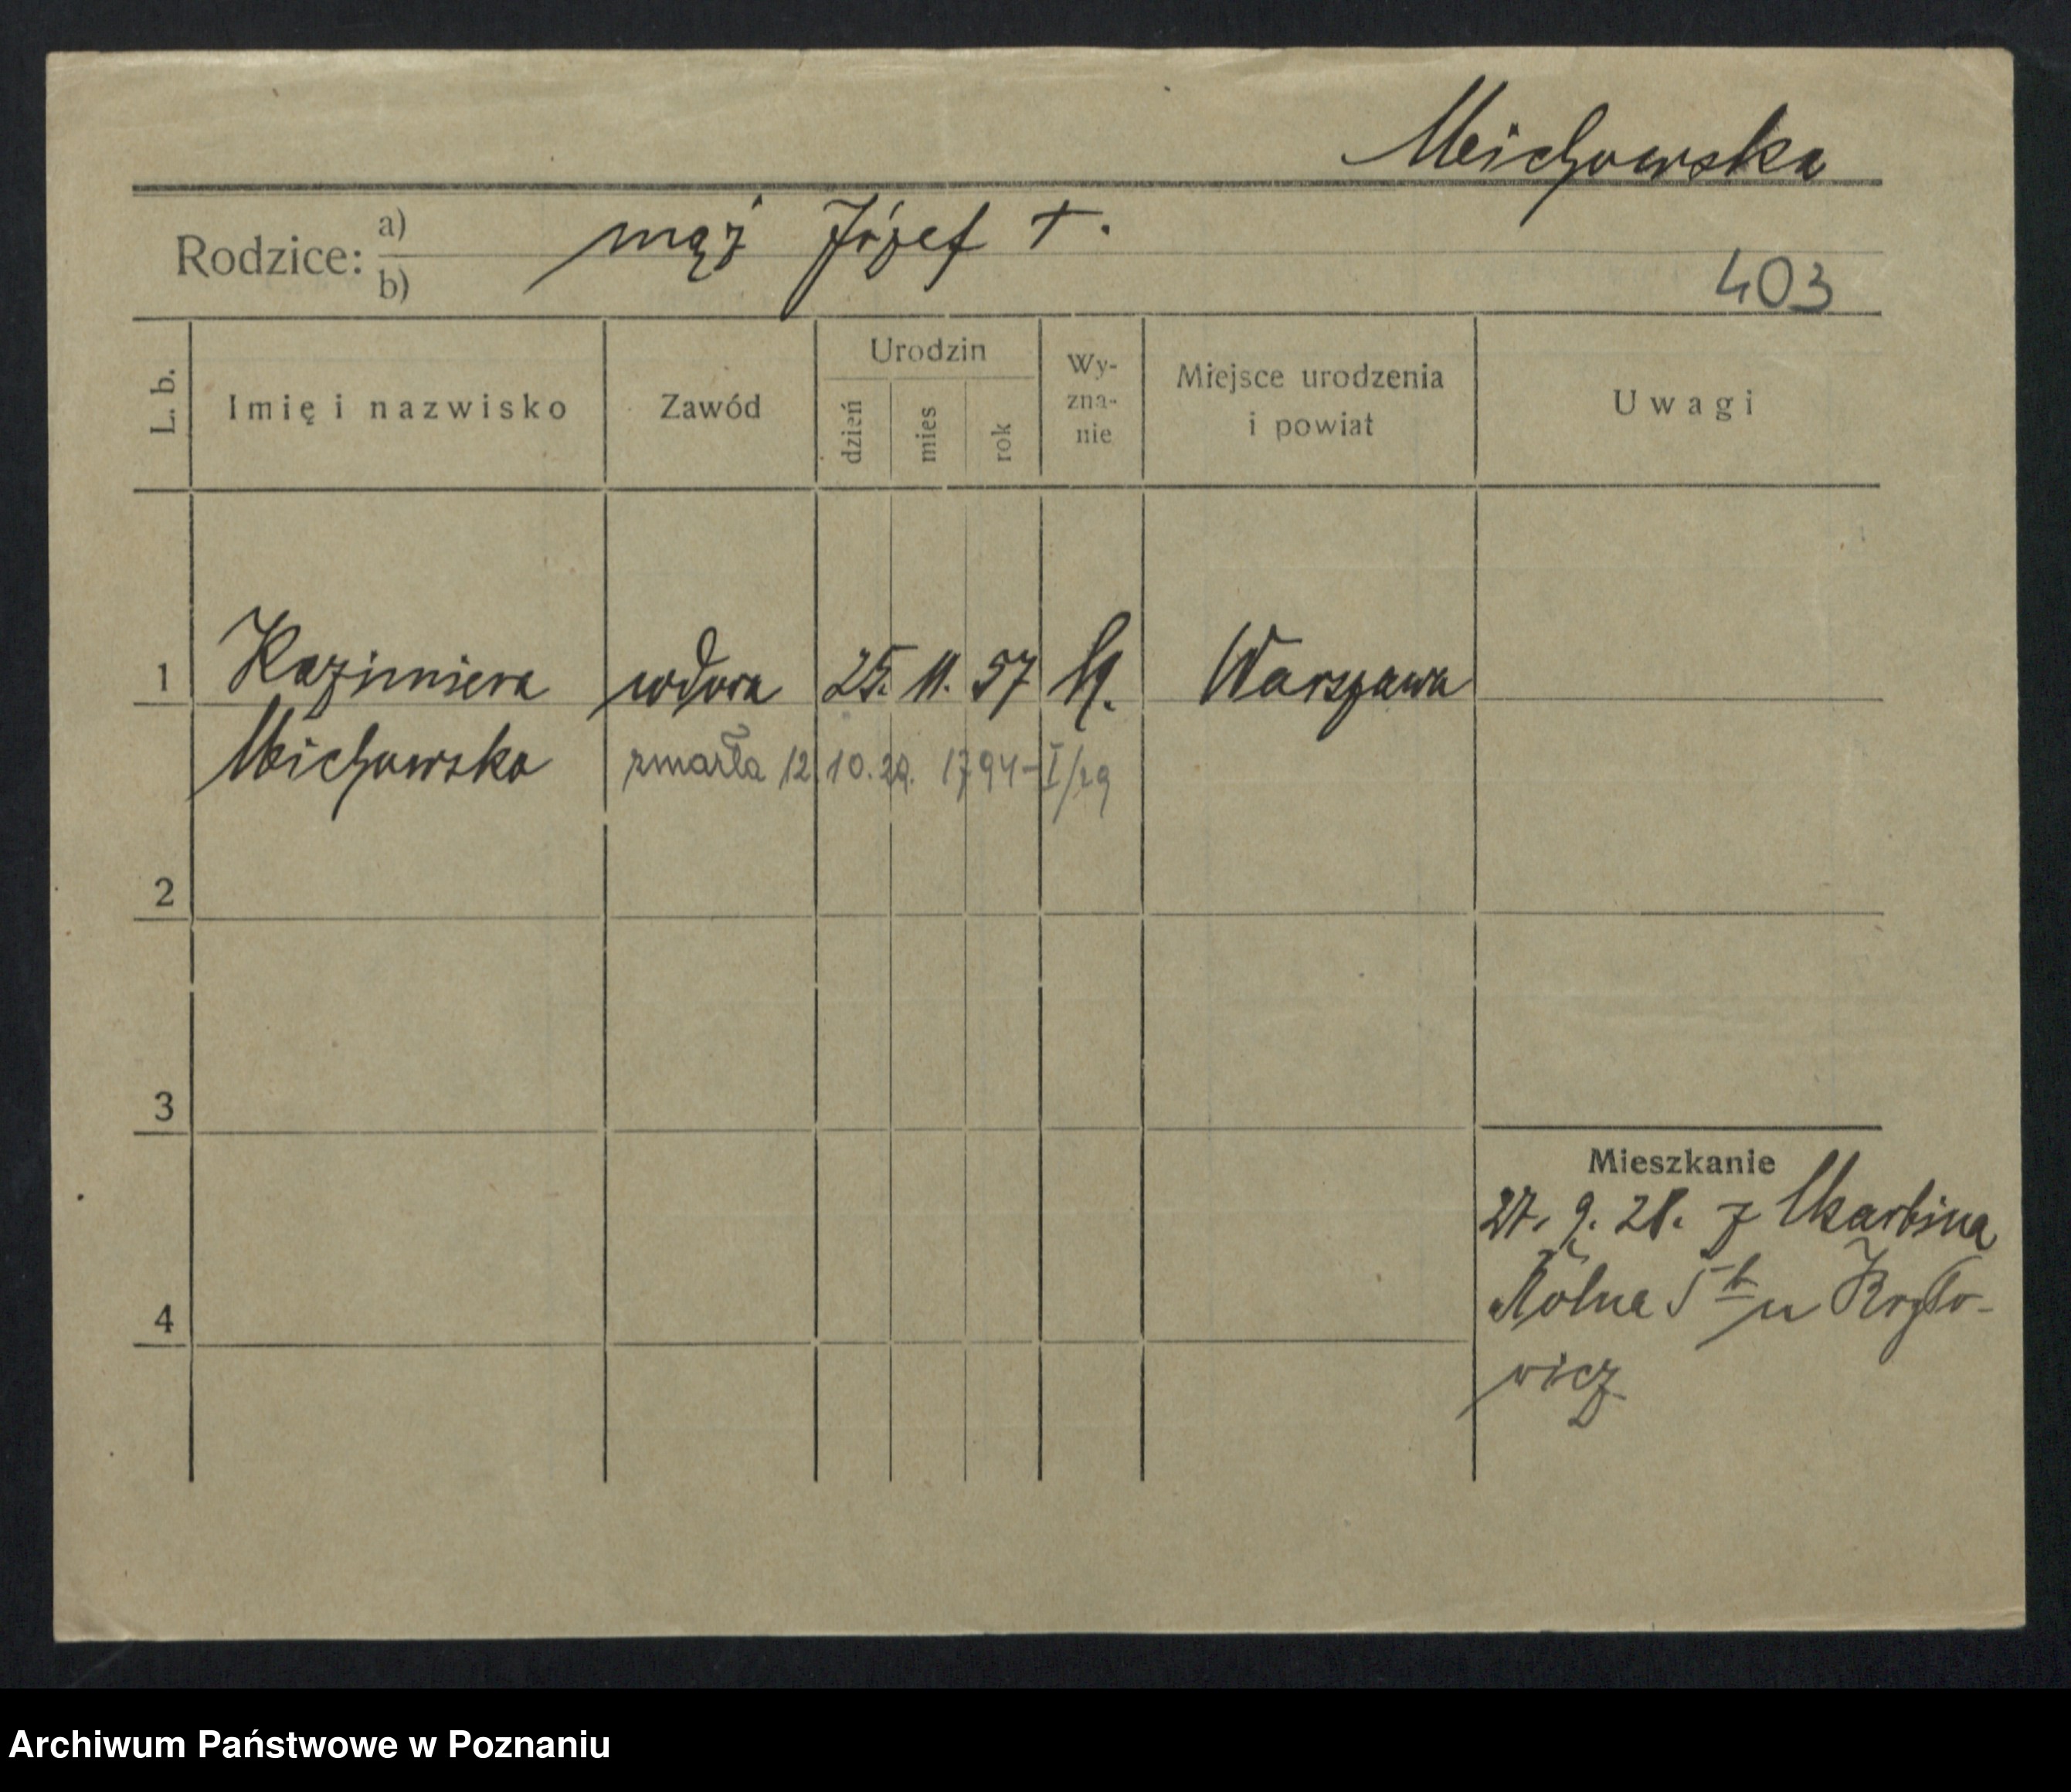 Michowska
Rodzice: a) mąż Józef †.
b)
403
L. b.
Imię i nazwisko
Zawód
Urodzin
dzień
mies
rok
Wy-
zna-
nie
Miejsce urodzenia
i powiat
Uwagi
1 Kazimiera wdowa 25. 11. 57 Warszawa
Michowska zmarła 12 10. 29. 1794-I/29
2
3
4
Mieszkanie
27. 9. 28. z
Rolna 5 u Kozło-
wicz
Archiwum Państwowe w Poznaniu